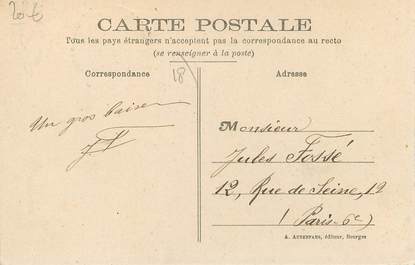 20 €
CARTE POSTALE
Tous les pays étrangers n'acceptent pas la correspondance au recto
(se renseigner à la poste)
Correspondance
18
Adresse
Un gros baiser
Monsieur
Jules Fossé
12, Rue de Seine, 12
(Paris-6e)
éditeur, Bourges